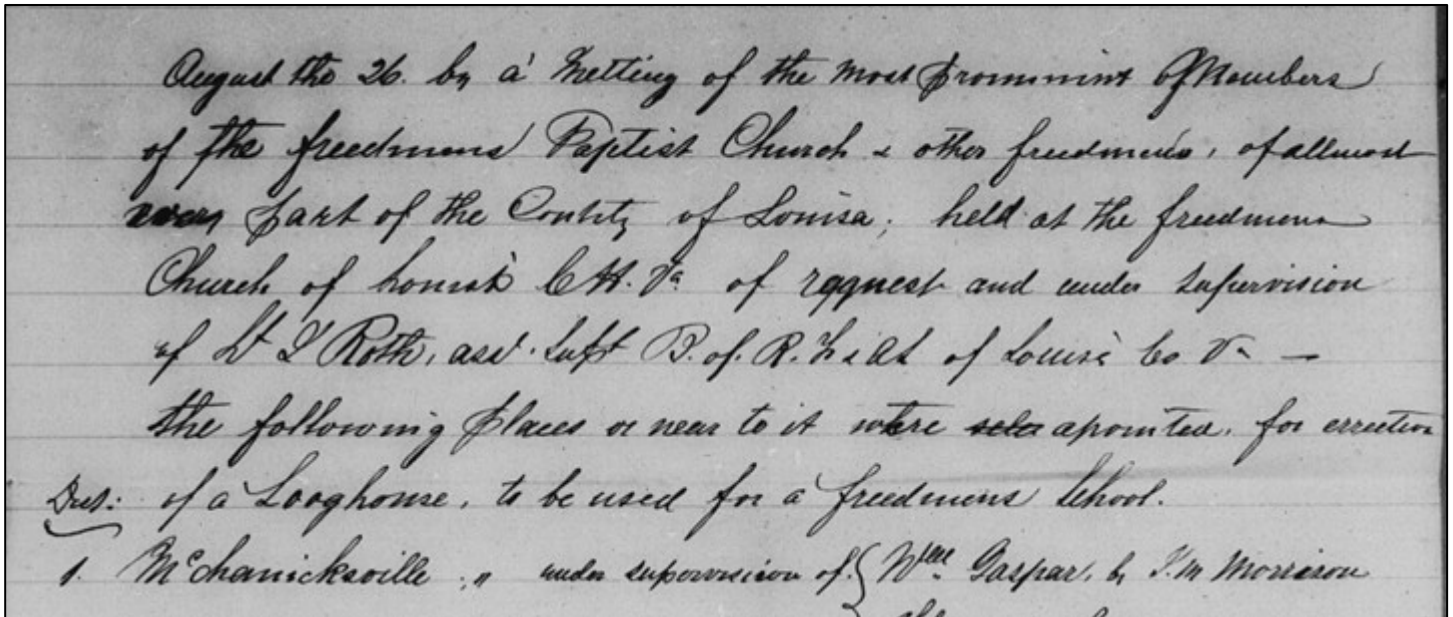 August the 26. by a' Metting of the most prominint of Members
of the freedmens' Baptist Church & other freedmens, of allmost
every part of the Contity of Louisa, held at the freedmens
Church of Louisa C.H. Va of request and under supervision
of Lt I Roth, ass't. Supt B. of. R. F. & A L of Louisa Co. Va —
the following places or near to it where apointed, for errection
Dist: of a Looghouse, to be used for a freedmens School.
1. McChanicksville „ under supervision of { Wm Gaspar, by T. M Morrison